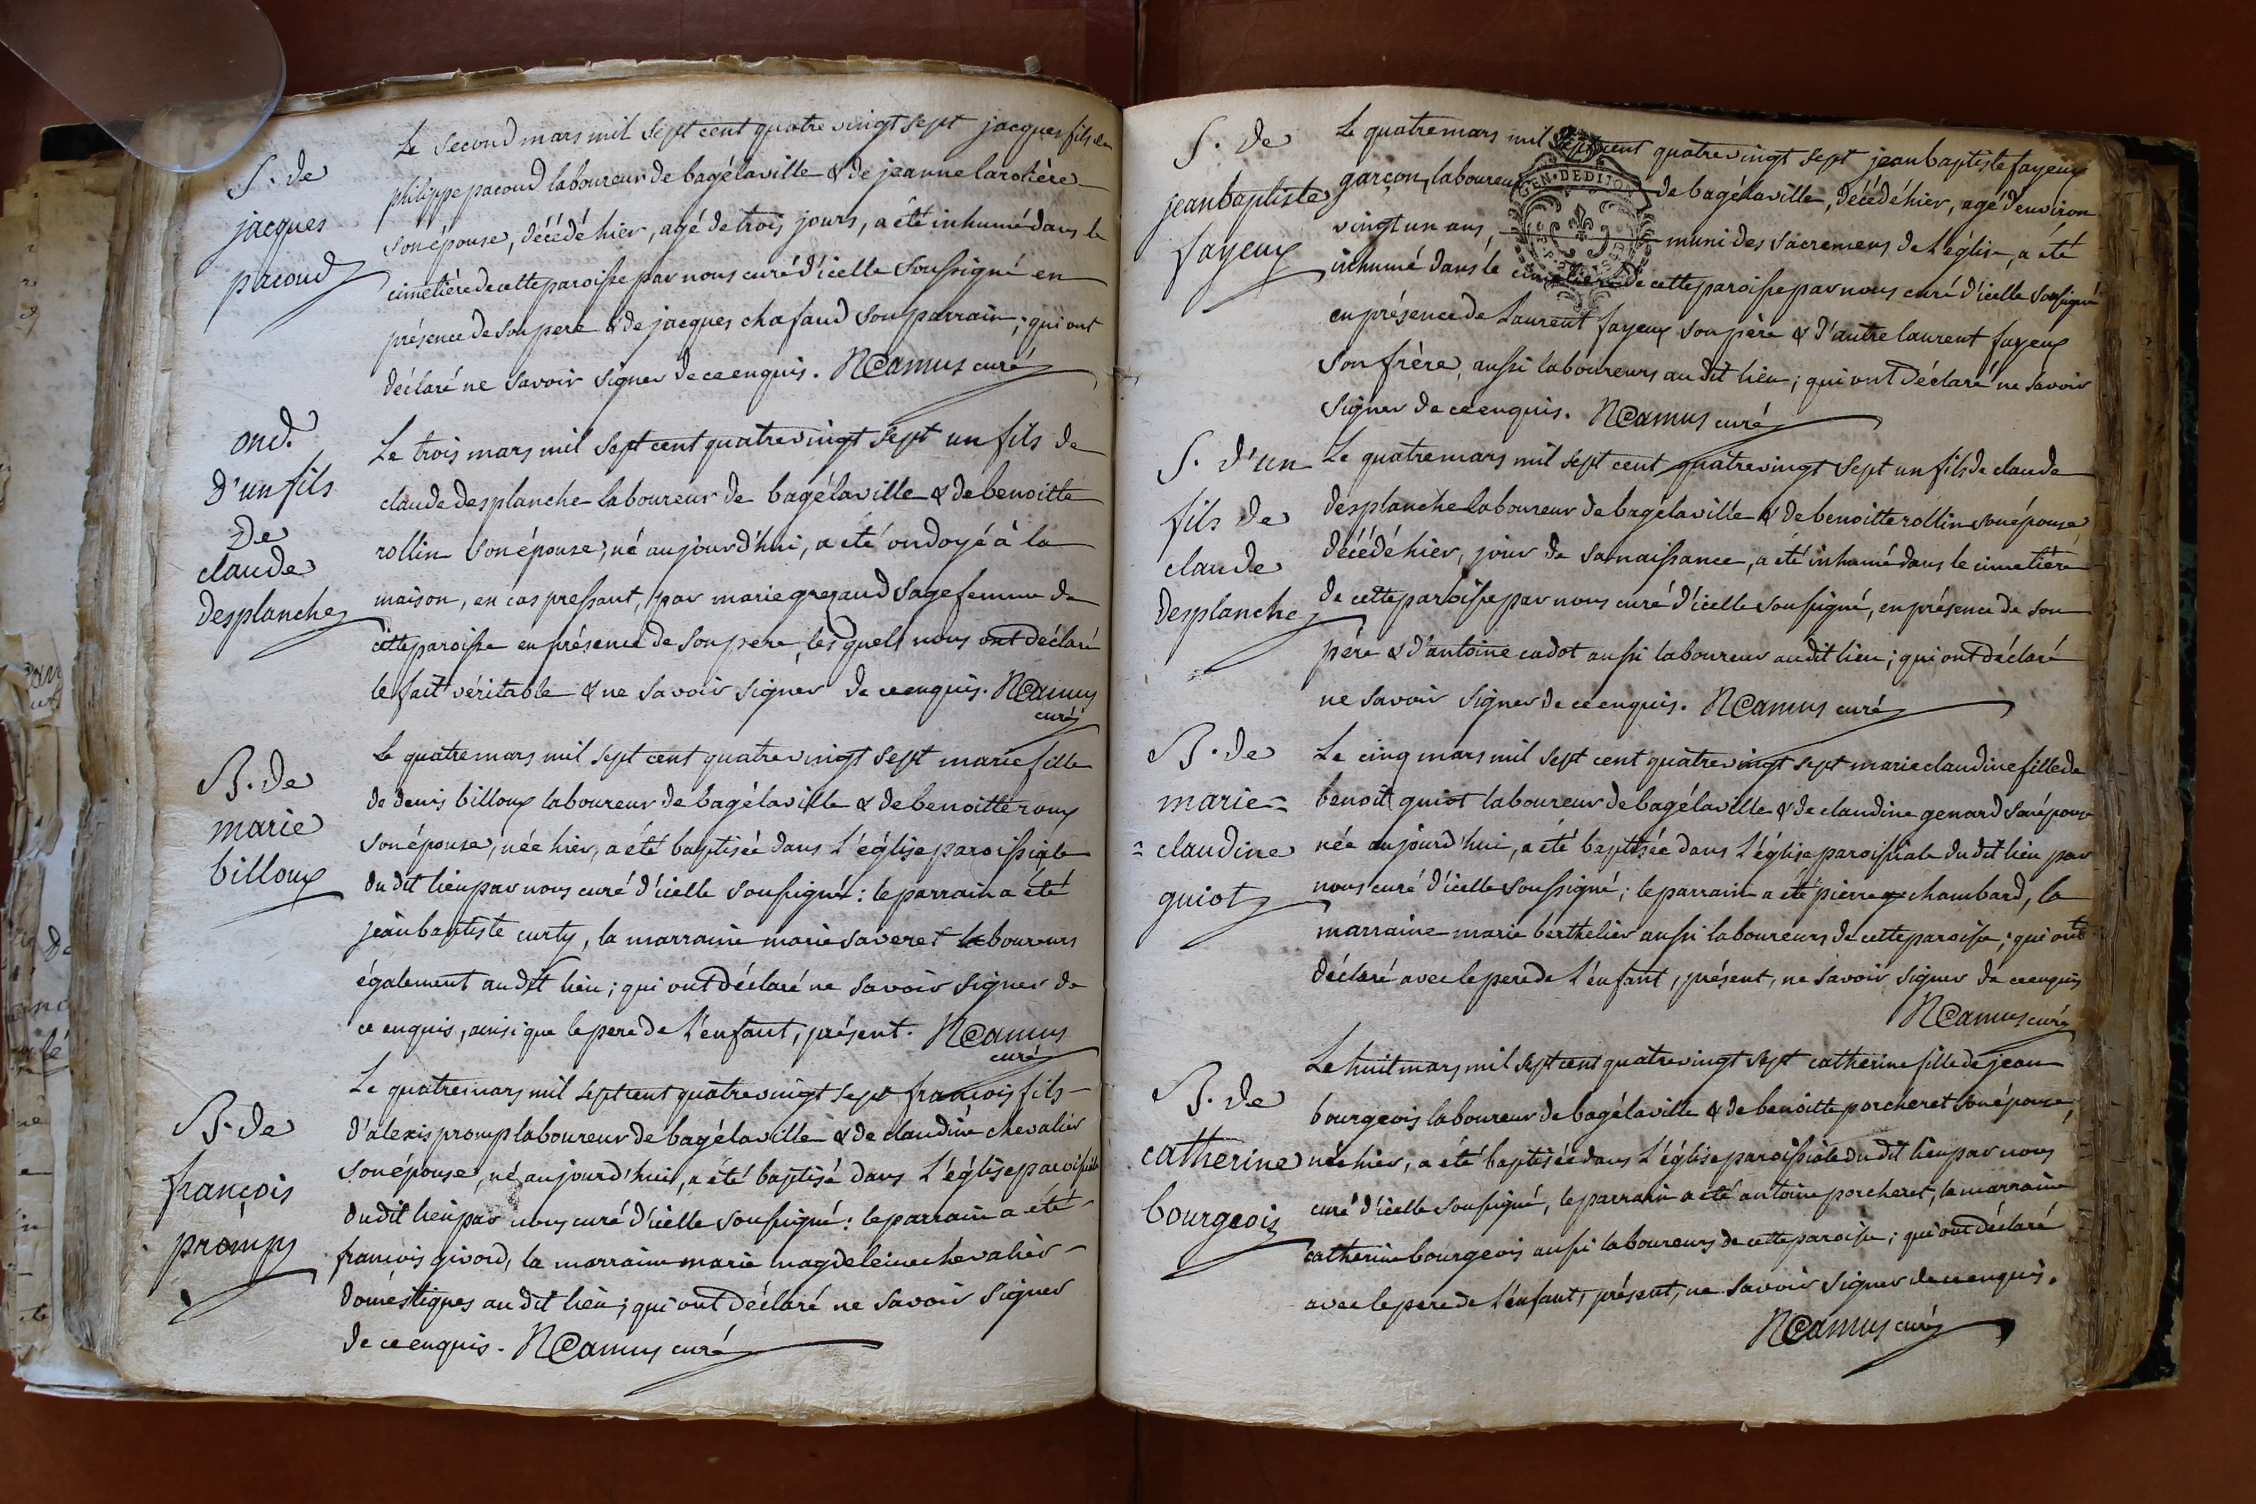 S. de
jacques
pacoud
Le second mars mil sept cent quatre vingt sept jacques fils de
philippe pacoud laboureur de bagélaville & de jeanne larolière
son épouse, décédé hier, agé de trois jours, a été inhumé dans le
cimetière de cette paroisse par nous curé d'icelle soussigné en
présence de son pere & de jacques chafaud son parrain; qui ont
déclaré ne savoir signer de ce enquis. NCamus curé
ond.
d'un fils
de
claude
desplanche
Le trois mars mil sept cent quatre vingt sept un fils de
claude desplanche laboureur de bagélaville & de benoitte
rollin son épouse, né aujourd'hui, a été ondoyé à la
maison, en cas pressant, par marie sage femme de
cette paroisse en présence de son pere, lesquels nous ont déclaré
le fait véritable & ne savoir signer de ce enquis. NCamus
curé
B. de
marie
billoux
Le quatre mars mil sept cent quatre vingt sept marie fille
de denis billoux laboureur de bagélaville & de benoitte roux
son épouse, née hier, a été baptisée dans l'église paroissiale
du dit lieu par nous curé d'icelle soussigné: le parrain a été
jean baptiste curty, la marraine marie saveret laboureurs
également au dit lieu; qui ont déclaré ne savoir signer de
ce enquis, ainsi que le pere de l'enfant, présent. NCamus
curé
B. de
françois
promps
Le quatre mars mil sept cent quatre vingt sept françois fils
d'alexis promp laboureur de bagélaville & de claudine chevalier
son épouse, né aujourd'hui, a été baptisé dans l'église paroissiale
du dit lieu par nous curé d'icelle soussigné: le parrain a été
françois givord, la marraine marie magdeleine chevalier
doméstiques au dit lieu; qui ont déclaré ne savoir signer
de ce enquis. NCamus curé
S. de
jean baptiste
fayeux
Le quatre mars mil sept cent quatre vingt sept jean baptiste fayeux
garçon, laboureur de bagélaville, décédé hier, agé d'environ
GEN. DE DIJON
vingt un ans, muni des sacremens de l'église, a été
inhumé dans le cimetière de cette paroisse par nous curé d'icelle soussigné
en présence de Laurent fayeux son père & d'autre laurent fayeux
son frère, aussi laboureurs au dit lieu; qui ont déclaré ne savoir
signer de ce enquis. NCamus curé
S. d'un
fils de
claude
desplanche
Le quatre mars mil sept cent quatre vingt sept un fils de claude
desplanche laboureur de bagélaville & de benoitte rollin son épouse
décédé hier, jour de sa naissance, a été inhumé dans le cimetière
de cette paroisse par nous curé d'icelle soussigné, en présence de son
père & d'antoine cadot aussi laboureur au dit lieu; qui ont déclaré
ne savoir signer de ce enquis. NCamus curé
B. de
marie=
=claudine
guiot
Le cinq mars mil sept cent quatre vingt sept marie claudine fille de
benoit guiot laboureur de bagélaville & de claudine genard son épouse
née aujourd'hui, a été baptisée dans l'église paroissiale du dit lieu par
nous curé d'icelle soussigné; le parrain a été pierre chambard, la
marraine marie berthelier aussi laboureurs de cette paroisse; qui ont
déclaré avec le pere de l'enfant, présent, ne savoir signer de ce enquis
NCamus curé
B. de
catherine
bourgeois
Le huit mars mil sept cent quatre vingt sept catherine fille de jean
bourgeois laboureur de bagélaville & de benoitte porcheret son épouse,
née hier, a été baptisée dans l'église paroissiale du dit lieu par nous
curé d'icelle soussigné, le parrain a été antoine porcheret, la marraine
catherine bourgeois aussi laboureurs de cette paroisse; qui ont déclaré
avec le pere de l'enfant, présent, ne savoir signer de ce enquis.
NCamus curé